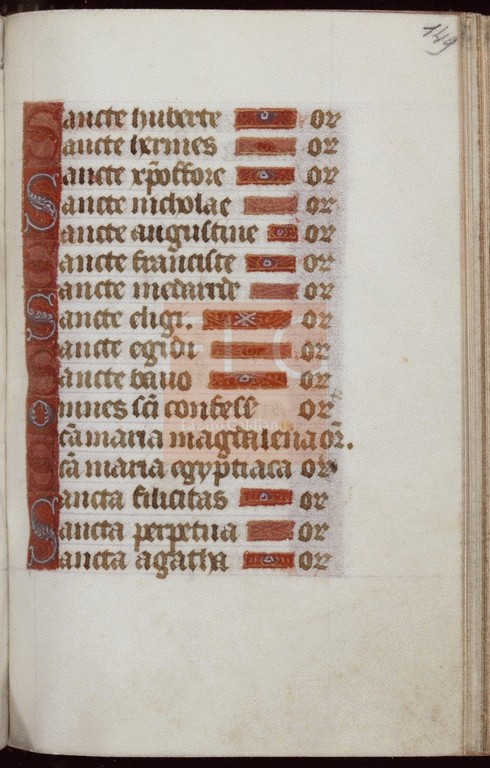 149
Sancte huberte or
Sancte hermes or
Sancte xpoffore or
Sancte nicholae or
Sancte augustine or
Sancte francisce or
Sancte medarde or
Sancte eligi. or
Sancte egidi or
Sancte bauo or
Omnes sci confess or
Sca maria magdalena or.
Sca maria egyptiaca or
Sancta filicitas or
Sancta perpetua or
Sancta agatha or